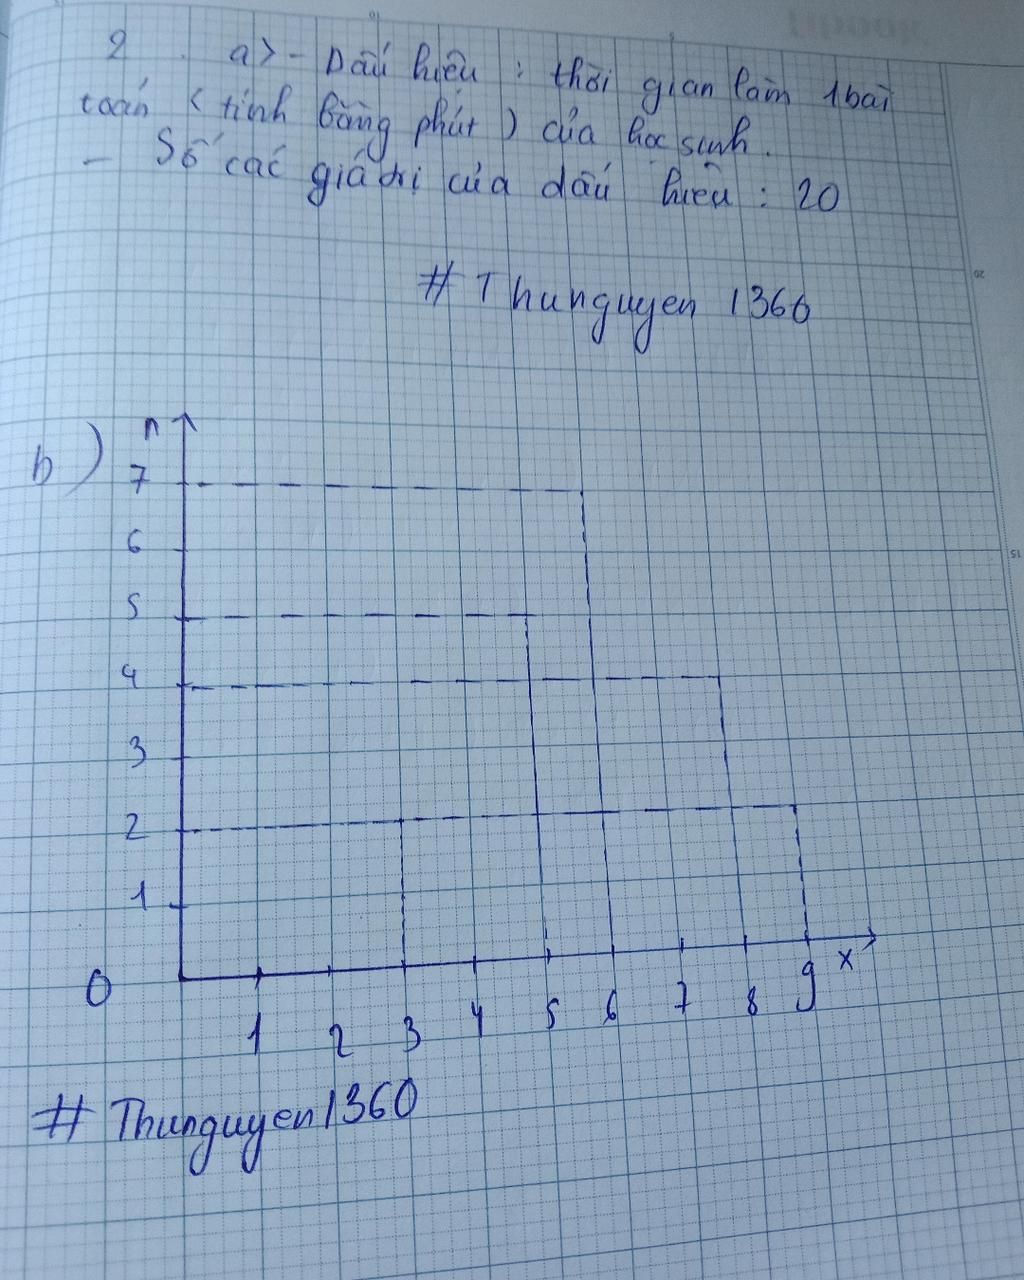 2. a> - Dấu hiệu : thời gian làm 1 bài
toán < tính bằng phút ) của học sinh.
- Số các giá trị của dấu hiệu : 20
# Thunguyen 1360
b)
n
7
6
5
4
3
2
1
0
1 2 3 4 5 6 7 8 9 x
# Thunguyen 1360